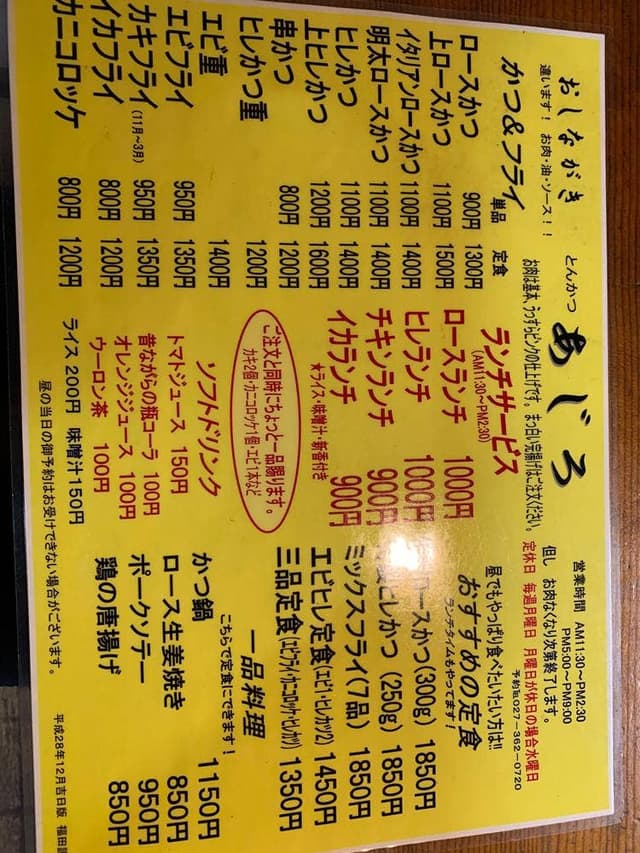 おしながき
違います! お肉・油・ソース!!
とんかつ あじろ
お肉は基本、うっすらピンクの仕上げです。まっ白い完揚げはご注文ください。
営業時間 AM11:30~PM2:30
PM5:00~PM9:00
但し お肉なくなり次第終了します。
定休日 毎週月曜日 月曜日が休の場合水曜日
予約℡027-362-0720
かつ&フライ
単品 定食
ロースかつ 900円 1300円
上ロースかつ 1100円 1500円
イタリアンロースかつ 1100円 1400円
明太ロースかつ 1100円 1400円
ヒレかつ 1100円 1400円
上ヒレかつ 1200円 1600円
串かつ 800円 1200円
ヒレかつ重 1200円
エビ重 1400円
エビフライ 950円 1350円
カキフライ(11月~3月) 950円 1350円
イカフライ 800円 1200円
カニコロッケ 800円 1200円
ランチサービス
(AM11:30~PM2:30)
ロースランチ 1000円
ヒレランチ 1000円
チキンランチ 900円
イカランチ 900円
★ライス・味噌汁・新香付き
ご注文と同時にちょっと一品賜ります。
カキ2個・カニコロッケ1個・エビ1本など
ソフトドリンク
トマトジュース 150円
昔ながらの瓶コーラ 100円
オレンジジュース 100円
ウーロン茶 100円
ライス 200円 味噌汁150円
昼の当日の御予約はお受けできない場合がございます。
昼でもやっぱり食べたいだい方は!!
おすすめの定食
ランチタイムもやってます!
ロースかつ(300g) 1850円
ヒレかつ (250g) 1850円
ミックスフライ(7品) 1850円
エビヒレ定食(エビ1・ヒレカツ2) 1450円
三品定食(エビフライ・カニコロッケ・ヒレカツ) 1350円
一品料理
こちらで定食にできます!
かつ鍋 1150円
ロース生姜焼き 850円
ポークソテー 950円
鶏の唐揚げ 850円
平成28年12月吉日版 福田